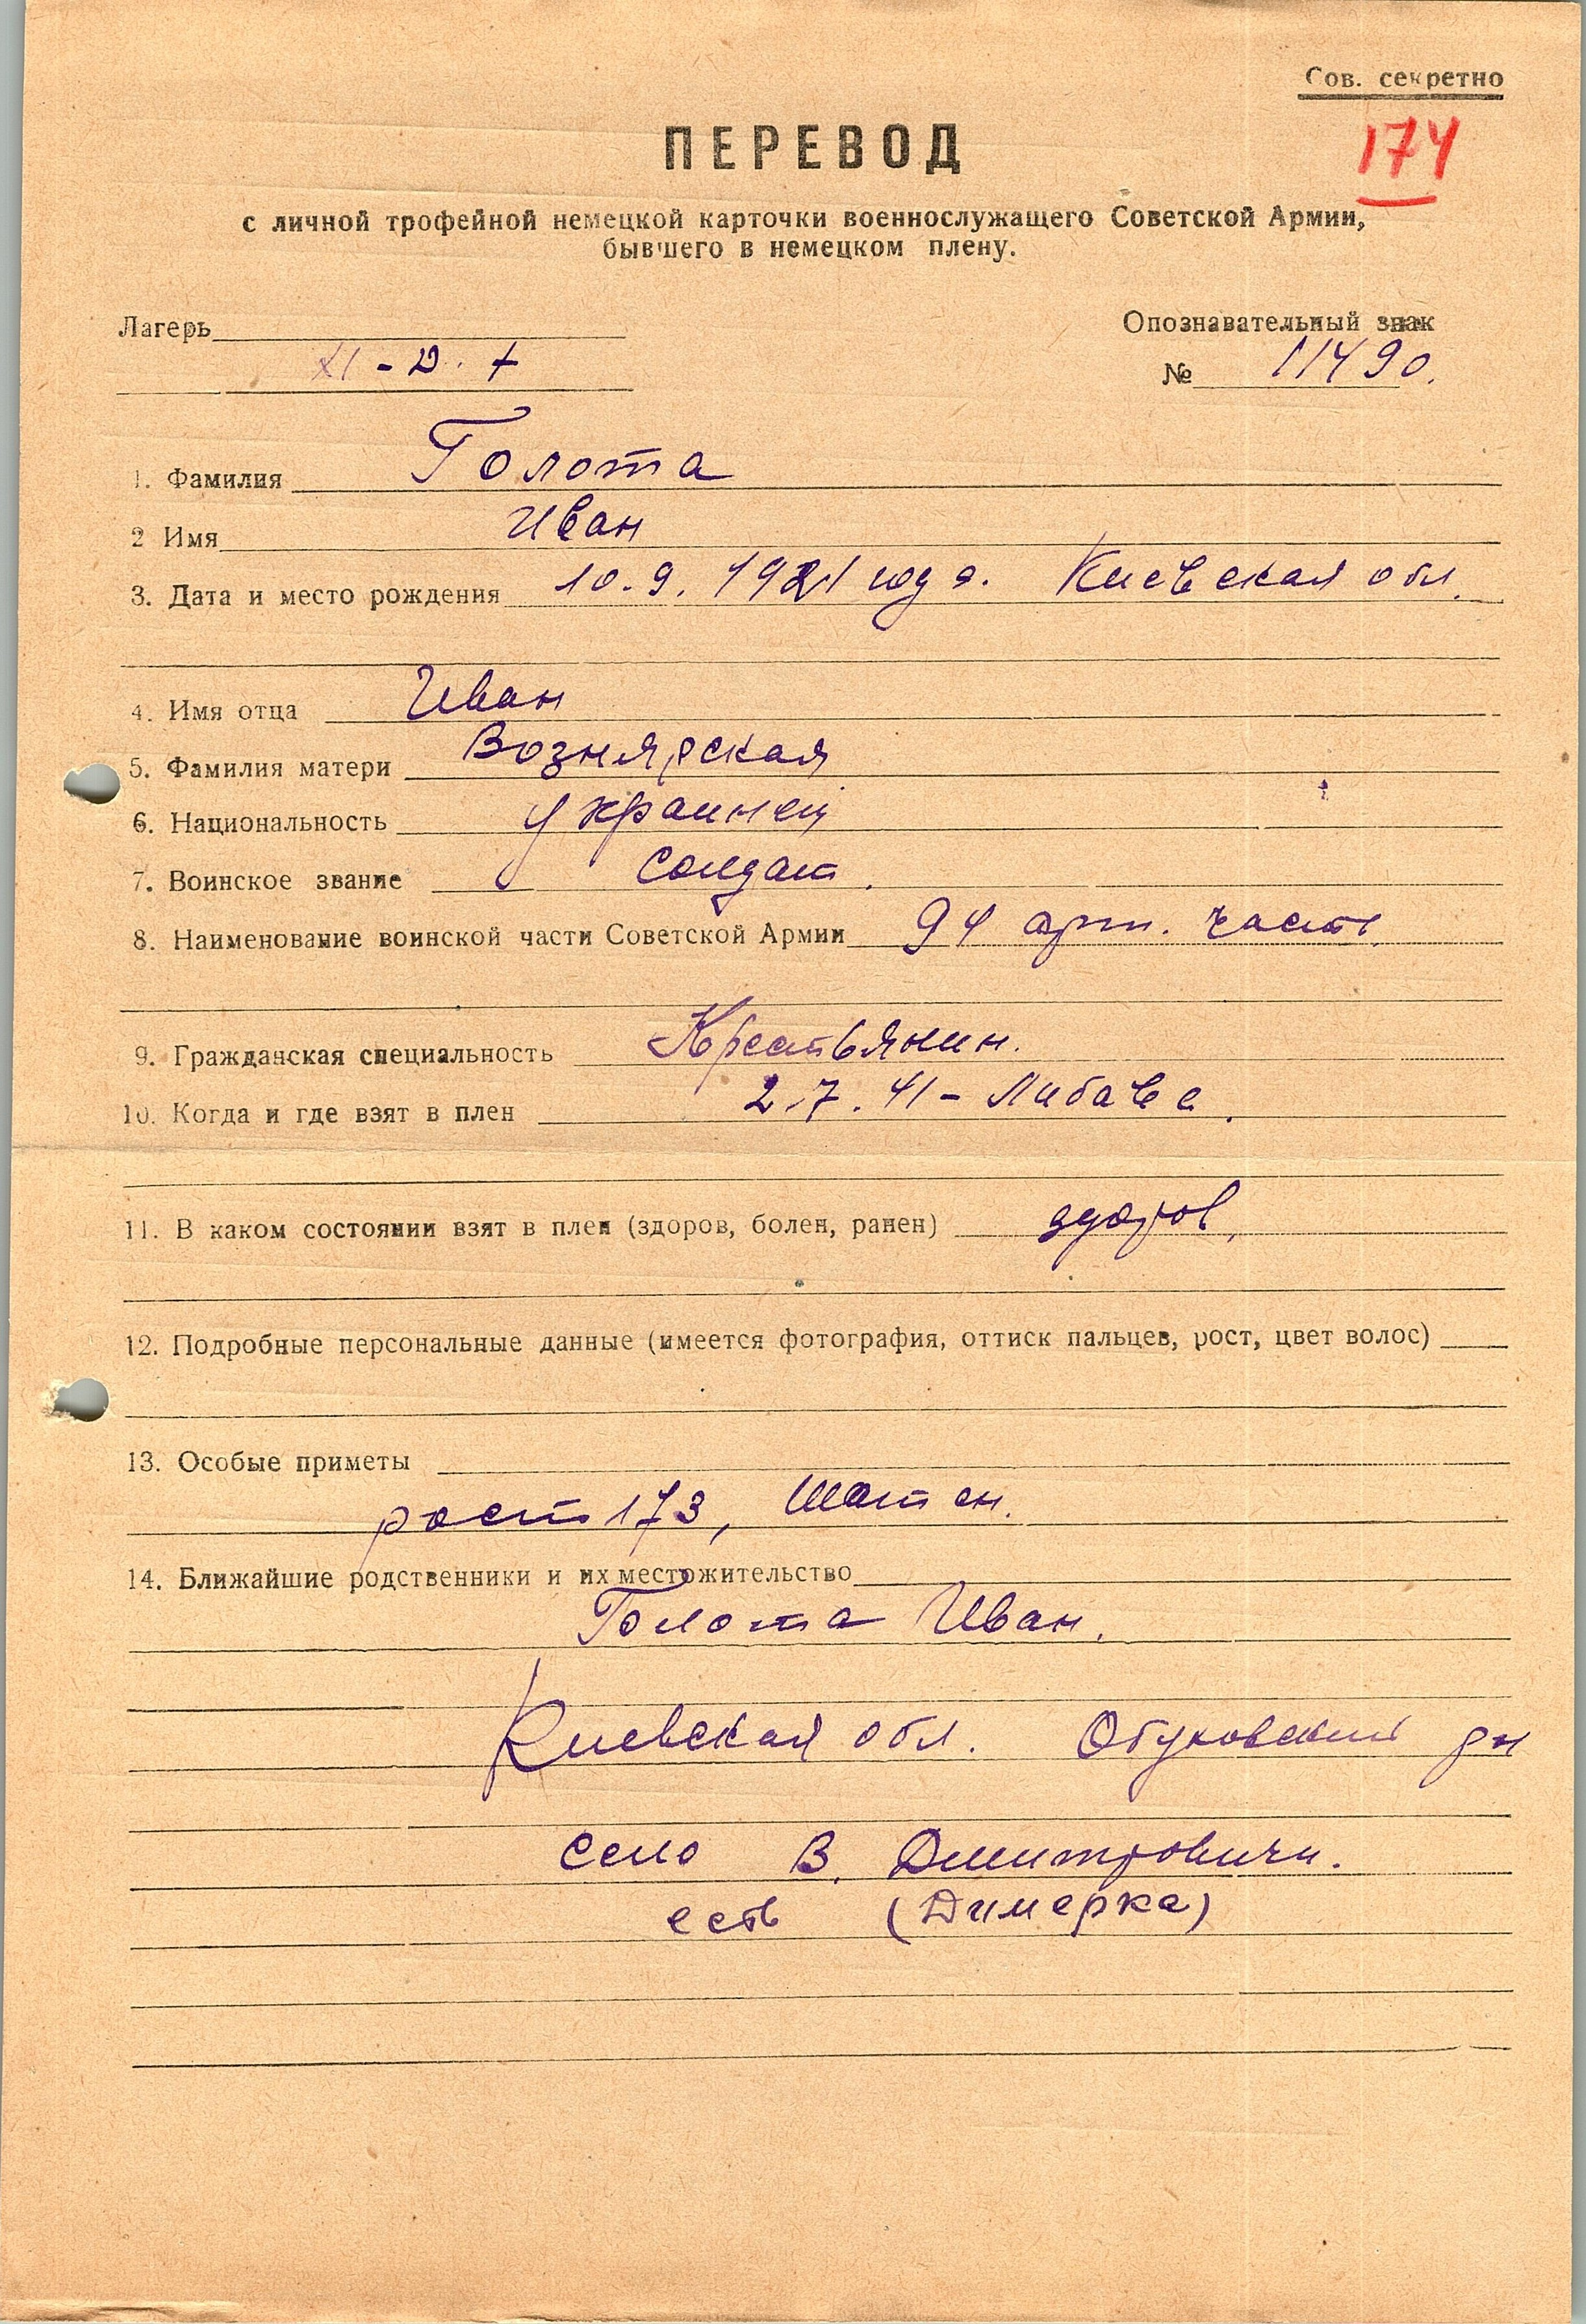 Сов. секретно
174
ПЕРЕВОД
с личной трофейной немецкой карточки военнослужащего Советской Армии,
бывшего в немецком плену.
Лагерь
XI-D.
Опознавательный знак
№ 11490.
1. Фамилия Голота
2 Имя Иван
3. Дата и место рождения 10.9.1921 года. Киевская обл.
4. Имя отца Иван
5. Фамилия матери
6. Национальность украинец
7. Воинское звание солдат.
8. Наименование воинской части Советской Армии 94 арт. часть.
9. Гражданская специальность Крестьянин.
10. Когда и где взят в плен 2.7.41 - Либава.
11. В каком состоянии взят в плен (здоров, болен, ранен) здоров,
12. Подробные персональные данные (имеется фотография, оттиск пальцев, рост, цвет волос)
13. Особые приметы
рост 173, шатен.
14. Ближайшие родственники и их местожительство
Голота Иван.
Киевская обл. Обуховский рн
село В. Дмитровичи.
есть (Димерка)